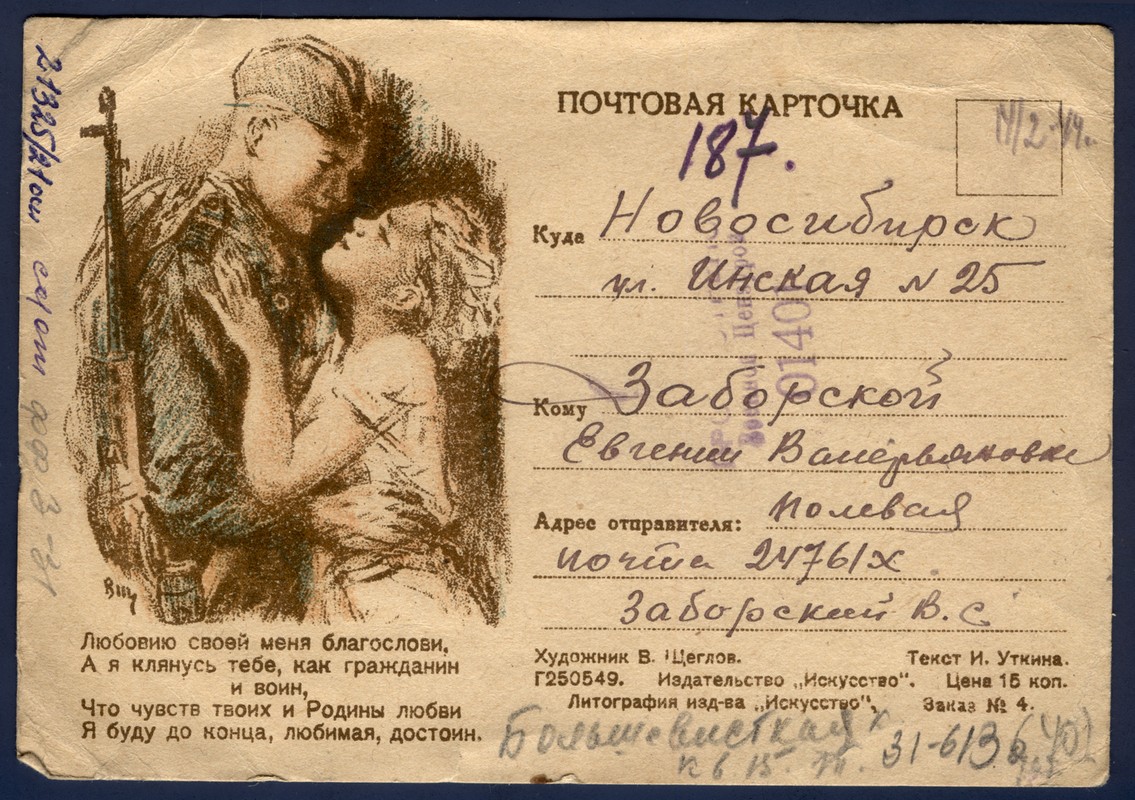 ПОЧТОВАЯ КАРТОЧКА
187.
14/2-44г.
Куда Новосибирск
ул. Инская N 25
0140
Кому Заборской
Евгении Валерьяновне
Адрес отправителя: Полевая
почта 24761Х
Заборский В.С
Художник В. Щеглов. Текст И. Уткина.
Г250549. Издательство „Искусство". Цена 15 коп.
Литография изд-ва „Искусство", Заказ № 4.
Большевистская
кв. 15. 31-613
ВЩ
Любовию своей меня благослови,
А я клянусь тебе, как гражданин
и воин,
Что чувств твоих и Родины любви
Я буду до конца, любимая, достоин.